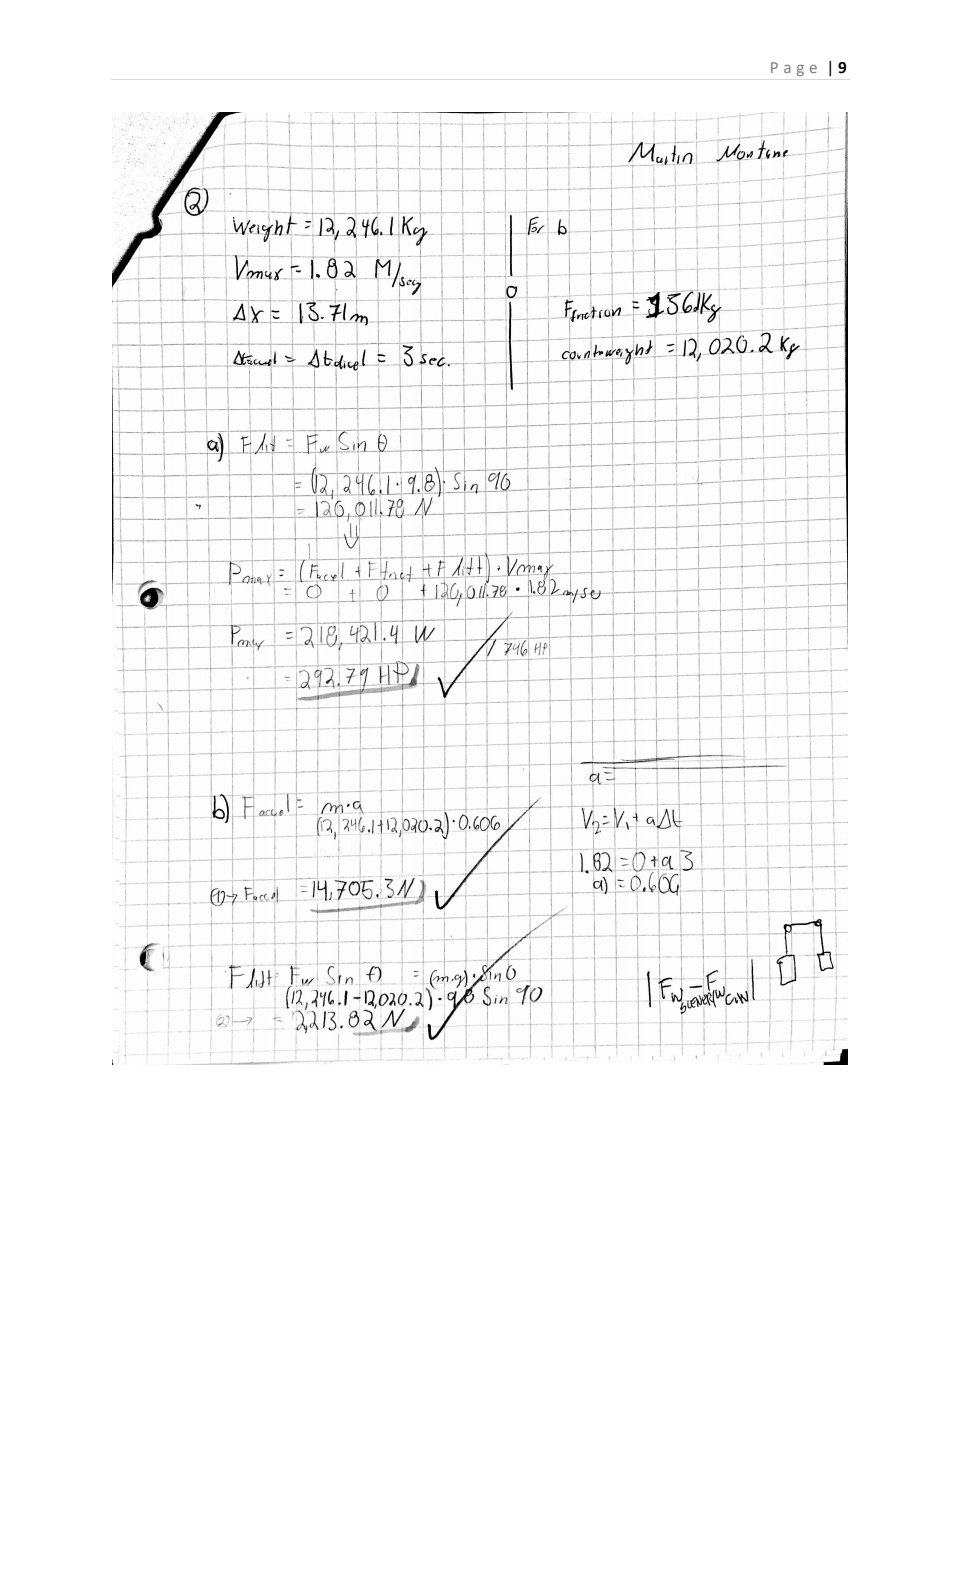 Page | 9
Martin Montane
②
Weight = 12,246.1 Kg
Vmax = 1.82 M/seg
ΔX = 13.71m
Δtaccel = Δtdicel = 3 sec.
For b
Ffriction = 1561Kg
counterweight = 12,020.2 Kg
a) F lift = Fw Sin θ
= (12,246.1 · 9.8) · Sin 90
= 120,011.78 N
⇓
Pmax = (Faccel + Ffrict + F lift) · Vmax
= 0 + 0 + 120,011.78 · 1.82 m/se
Pmax = 218,421.4 W
/ 746 HP
= 292.79 HP
a=
b) Faccel = m·a
(12,246.1+12,020.2)·0.606
V₂=V₁+aΔt
1.82 = 0+a 3
a) = 0.606
(1)→ Faccel = 14,705.3N
F lift: Fw Sin θ = (m.g)·Sin θ
(12,246.1-12,020.2)·98 Sin 90
(2)→ = 2,213.82 N
|Fw SCENERY - Fw CNW|